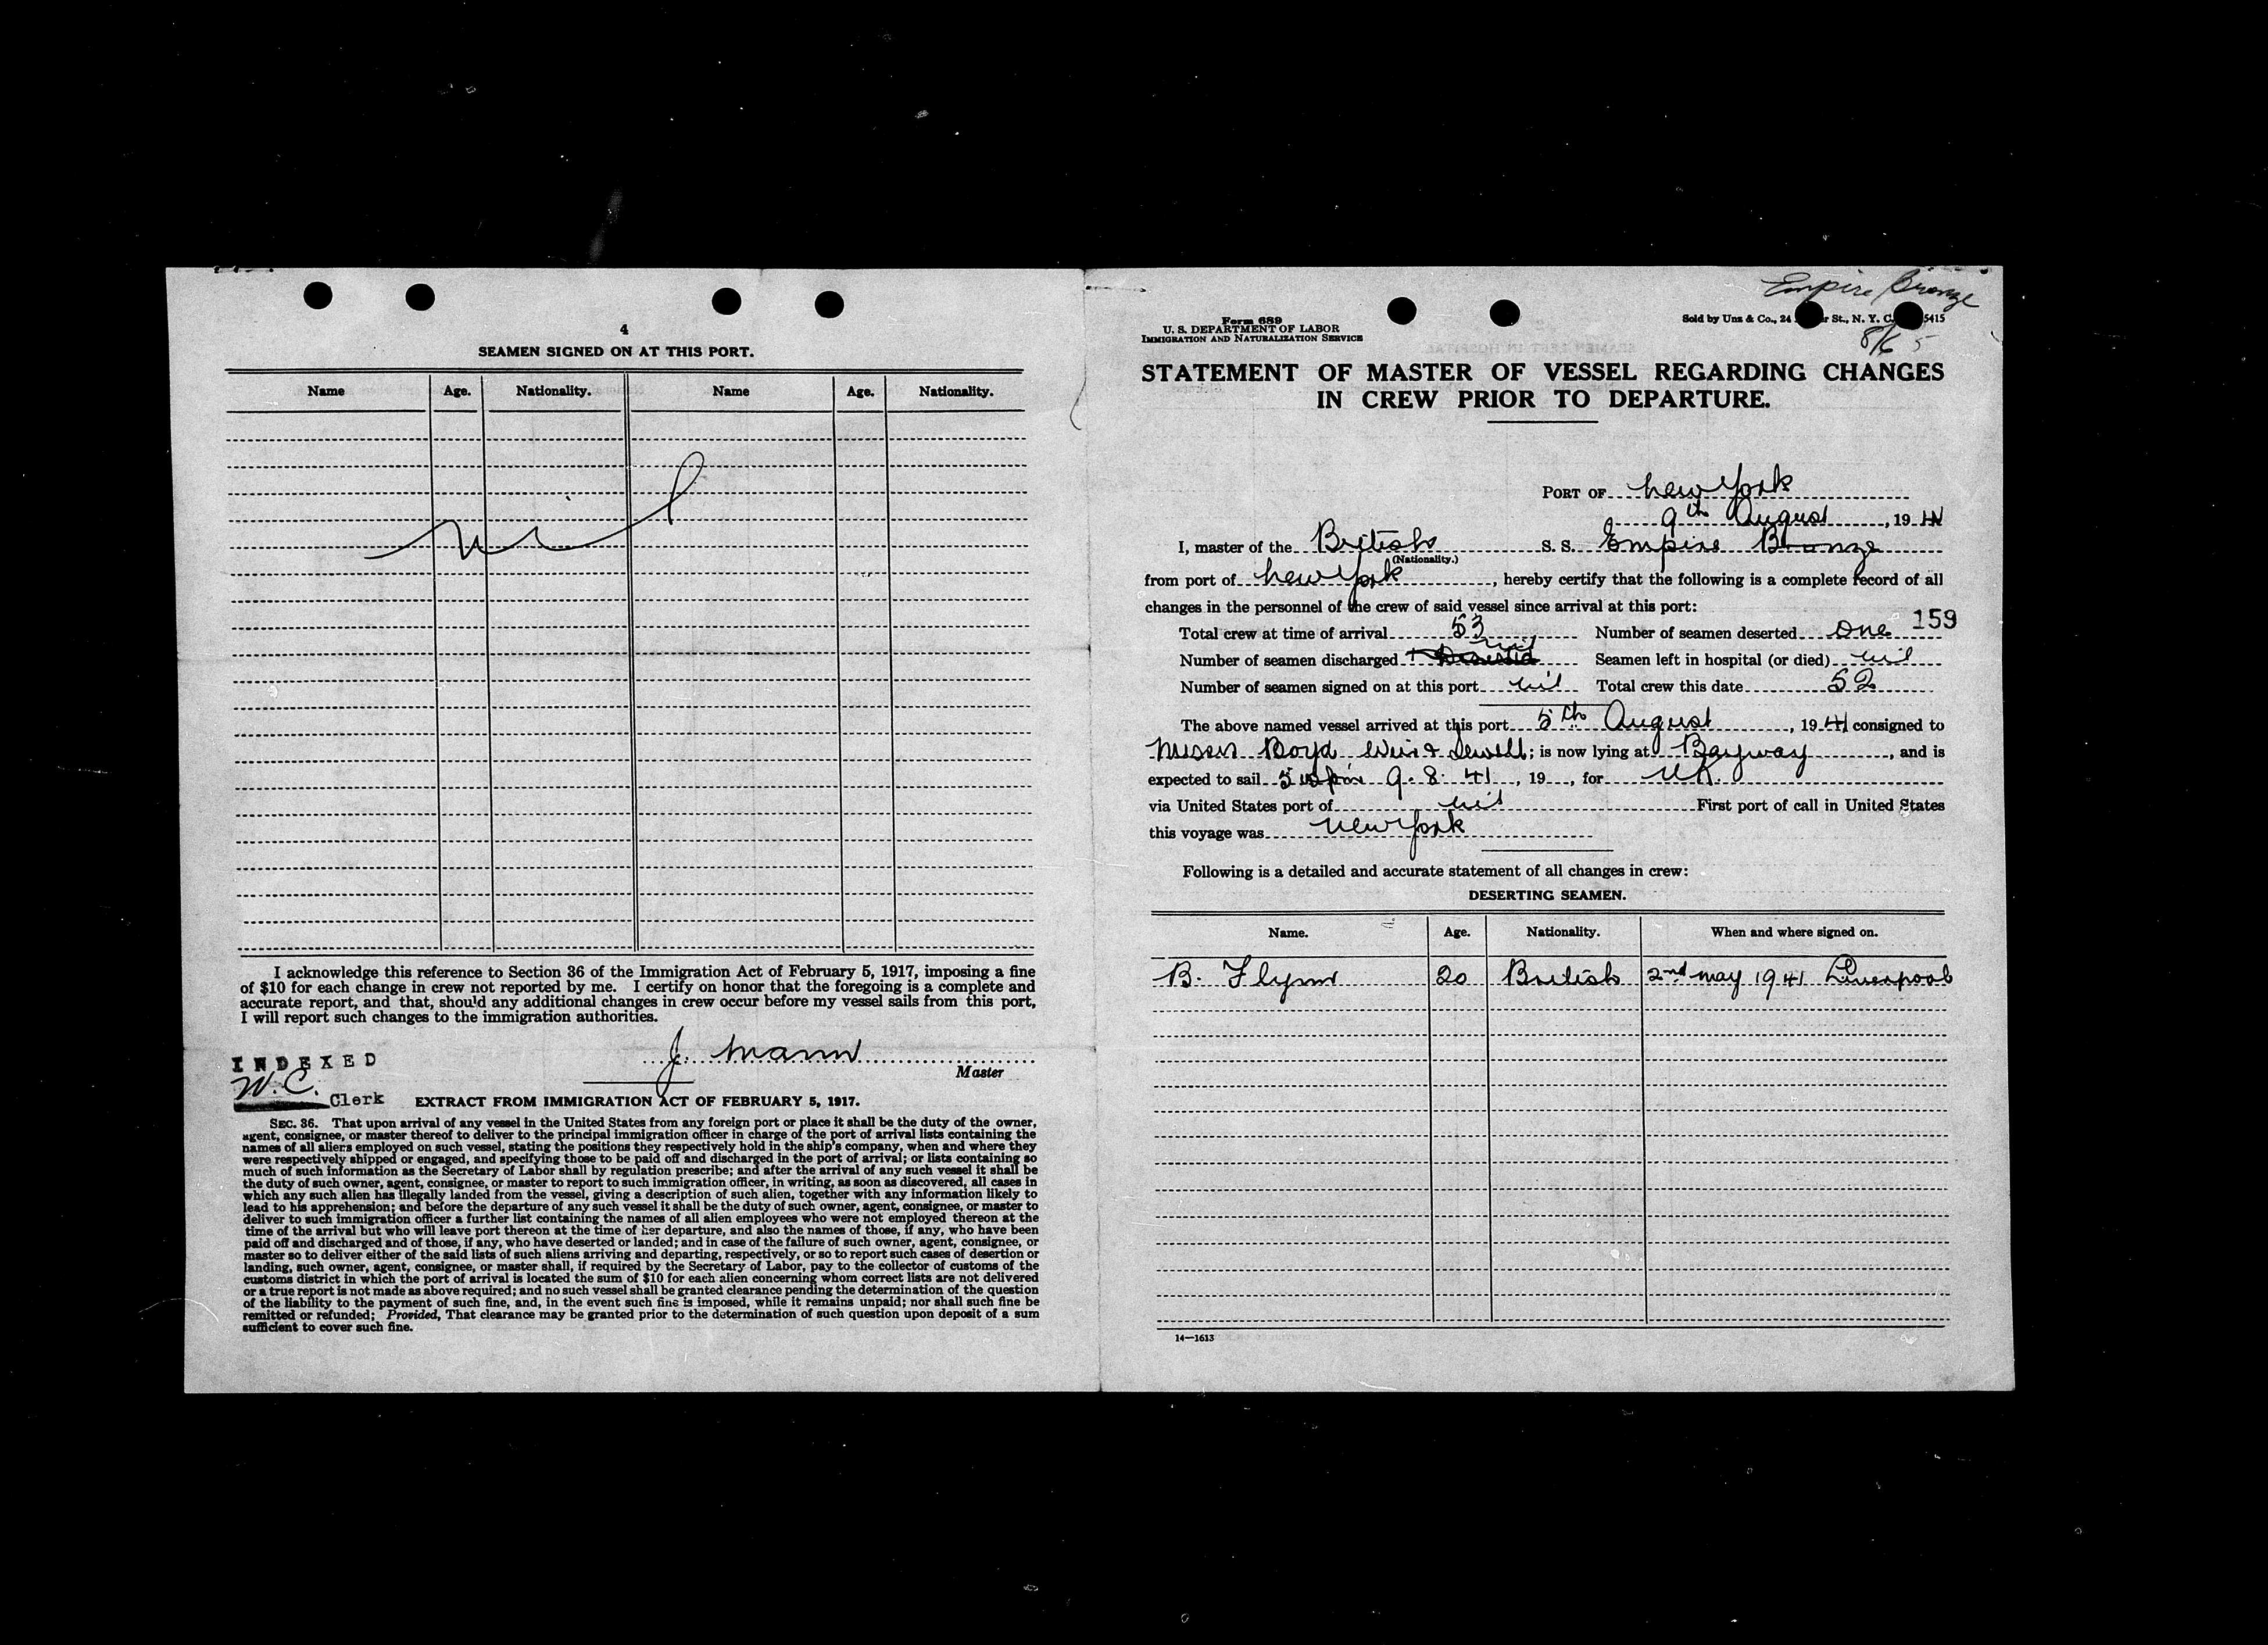 4
SEAMEN SIGNED ON AT THIS PORT.
Name Age. Nationality. Name Age. Nationality.
nil
I acknowledge this reference to Section 36 of the Immigration Act of February 5, 1917, imposing a fine
of $10 for each change in crew not reported by me. I certify on honor that the foregoing is a complete and
accurate report, and that, should any additional changes in crew occur before my vessel sails from this port,
I will report such changes to the immigration authorities.
J. Mann
Master
INDEXED
W.C. Clerk
EXTRACT FROM IMMIGRATION ACT OF FEBRUARY 5, 1917.
SEC. 36. That upon arrival of any vessel in the United States from any foreign port or place it shall be the duty of the owner,
agent, consignee, or master thereof to deliver to the principal immigration officer in charge of the port of arrival lists containing the
names of all aliens employed on such vessel, stating the positions they respectively hold in the ship's company, when and where they
were respectively shipped or engaged, and specifying those to be paid off and discharged in the port of arrival; or lists containing so
much of such information as the Secretary of Labor shall by regulation prescribe; and after the arrival of any such vessel it shall be
the duty of such owner, agent, consignee, or master to report to such immigration officer, in writing, as soon as discovered, all cases in
which any such alien has illegally landed from the vessel, giving a description of such alien, together with any information likely to
lead to his apprehension; and before the departure of any such vessel it shall be the duty of such owner, agent, consignee, or master to
deliver to such immigration officer a further list containing the names of all alien employees who were not employed thereon at the
time of the arrival but who will leave port thereon at the time of her departure, and also the names of those, if any, who have been
paid off and discharged and of those, if any, who have deserted or landed; and in case of the failure of such owner, agent, consignee, or
master so to deliver either of the said lists of such aliens arriving and departing, respectively, or so to report such cases of desertion or
landing, such owner, agent, consignee, or master shall, if required by the Secretary of Labor, pay to the collector of customs of the
customs district in which the port of arrival is located the sum of $10 for each alien concerning whom correct lists are not delivered
or a true report is not made as above required; and no such vessel shall be granted clearance pending the determination of the question
of the liability to the payment of such fine, and, in the event such fine is imposed, while it remains unpaid; nor shall such fine be
remitted or refunded; Provided, That clearance may be granted prior to the determination of such question upon deposit of a sum
sufficient to cover such fine.
Empire Bronze
Form 689
U. S. DEPARTMENT OF LABOR
IMMIGRATION AND NATURALIZATION SERVICE
Sold by Unz & Co., 24 St., N. Y. C. 5415
8/6 5
STATEMENT OF MASTER OF VESSEL REGARDING CHANGES
IN CREW PRIOR TO DEPARTURE.
PORT OF New York
9th August, 1941
I, master of the British S. S. Empire Bronze
(Nationality.)
from port of New York, hereby certify that the following is a complete record of all
changes in the personnel of the crew of said vessel since arrival at this port:
159
Total crew at time of arrival 53 Number of seamen deserted One
Number of seamen discharged nil Seamen left in hospital (or died) nil
Number of seamen signed on at this port nil Total crew this date 52
The above named vessel arrived at this port 5th August, 1941 consigned to
Messrs Boyd, Weir & Sewell; is now lying at Bayway, and is
expected to sail 5 pm 9. 8. 41, 19 , for U.K.
via United States port of nil First port of call in United States
this voyage was New York
Following is a detailed and accurate statement of all changes in crew:
DESERTING SEAMEN.
Name. Age. Nationality. When and where signed on.
B. Flynn 20 British 2nd May 1941 Liverpool
14—1613